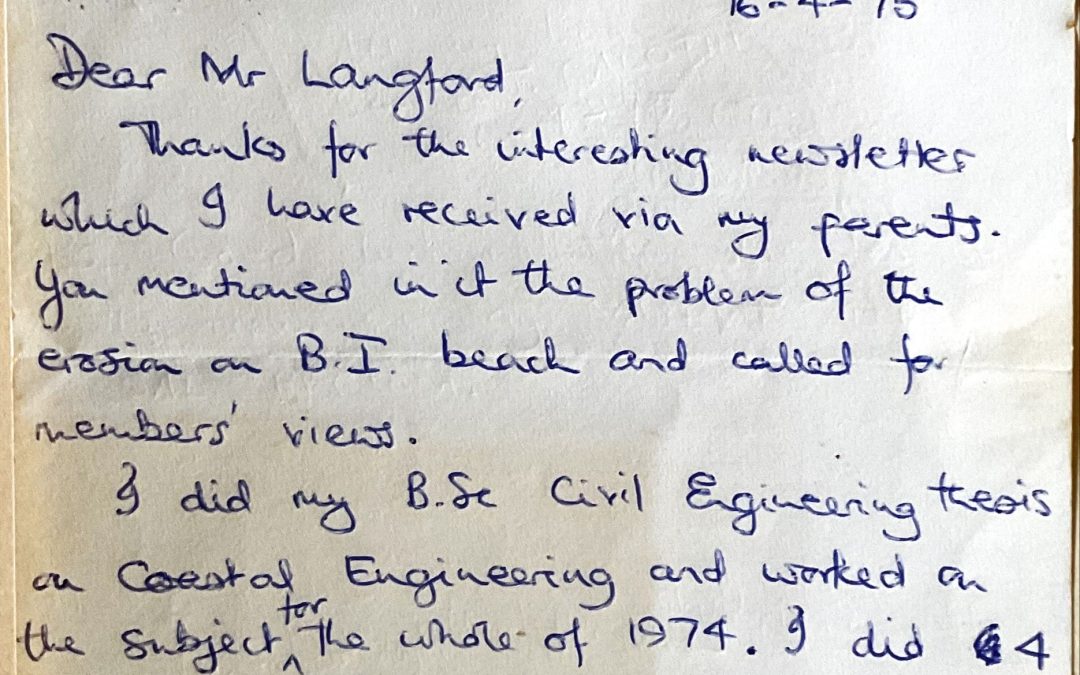 16-4-75
Dear Mr Langford,
Thanks for the interesting newsletter
which I have received via my parents.
You mentioned in it the problem of the
erosion on B.I. beach and called for
members' views.
I did my B.Sc Civil Engineering thesis
on Coastal Engineering and worked on
the subject for the whole of 1974. I did 4